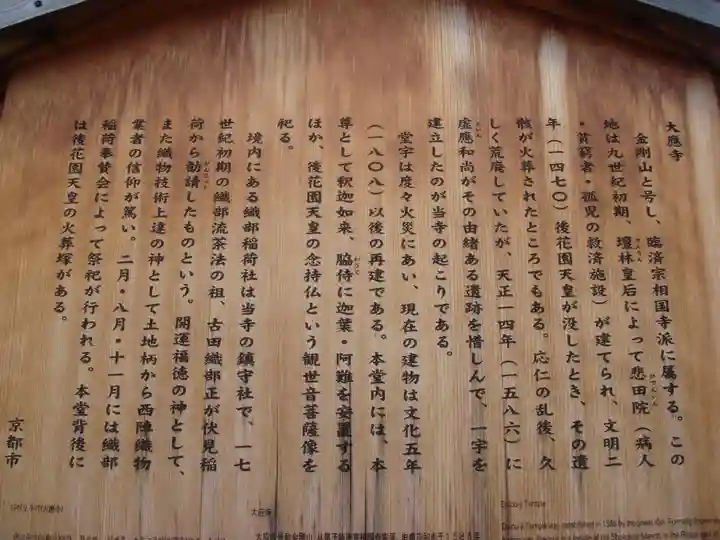 大應寺
金剛山と号し、臨済宗相国寺派に属する。この
地は九世紀初期、壇林皇后によって悲田院（病人
・貧窮者・孤児の救済施設）が建てられ、文明二
年（一四七〇）後花園天皇が没したとき、その遺
骸が火葬されたところでもある。応仁の乱後、久
しく荒廃していたが、天正一四年（一五八六）に
虚應和尚がその由緒ある遺跡を惜しんで、一宇を
建立したのが当寺の起こりである。
堂宇は度々火災にあい、現在の建物は文化五年
（一八〇八）以後の再建である。本堂内には、本
尊として釈迦如来、脇侍に迦葉・阿難を安置する
ほか、後花園天皇の念持仏という観世音菩薩像を
祀る。
境内にある織部稲荷社は当寺の鎮守社で、一七
世紀初期の織部流茶法の祖、古田織部正が伏見稲
荷から勧請したものという。開運福徳の神として、
また織物技術上達の神として土地柄から西陣織物
業者の信仰が篤い。二月・八月・十一月には織部
稲荷奉賛会によって祭祀が行われる。本堂背後に
は後花園天皇の火葬塚がある。
京都市